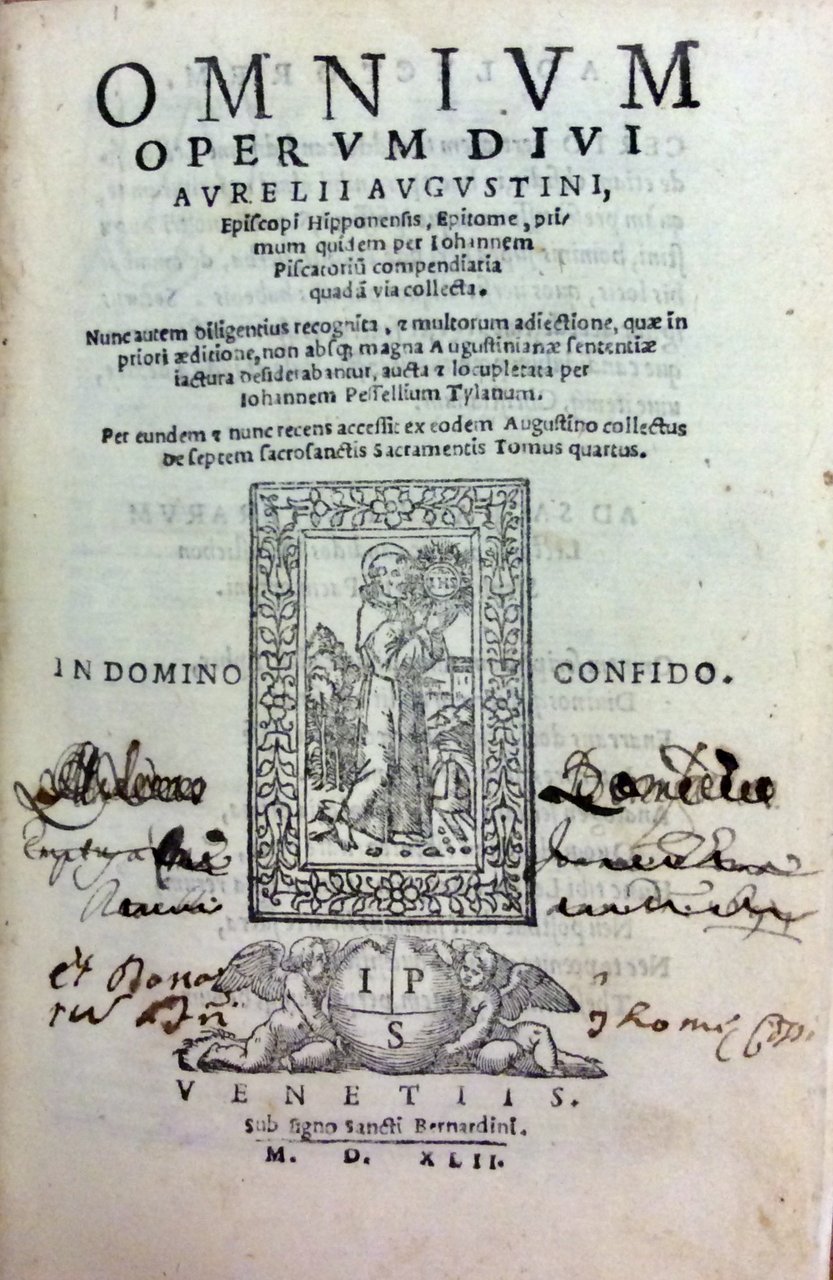 OMNIVM
OPERVM DIVI
AVRELII AVGVSTINI,
Epiſcopi Hipponenſis, Epitome, pri⸗
mum quidem per Iohannem
Piſcatoriū compendiaria
quadā via collecta.
Nunc autem diligentius recognita, ⁊ multorum adiectione, quæ in
priori æditione, non abſq; magna Auguſtinianæ ſententiæ
iactura deſiderabantur, aucta ⁊ locupletata per
Iohannem Peſſellium Tylanum.
Per eundem ⁊ nunc recens acceſſit ex eodem Auguſtino collectus
de ſeptem ſacroſanctis Sacramentis Tomus quartus.
IHS
IN DOMINO CONFIDO.
et Bono
Thome
I P
S
VENETIIS.
Sub ſigno Sancti Bernardini.
M. D. XLII.